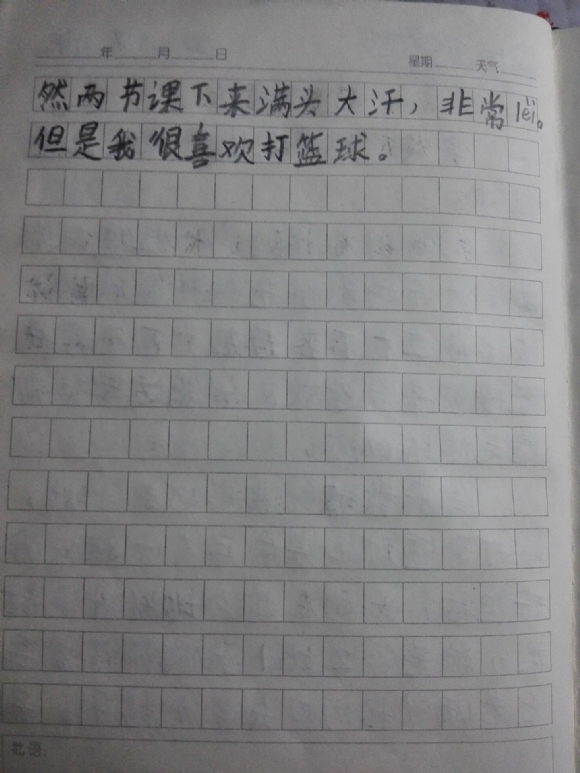 年 月 日 星期 天气
然两节课下来满头大汗，非常lèi。
但是我很喜欢打篮球。
批语：